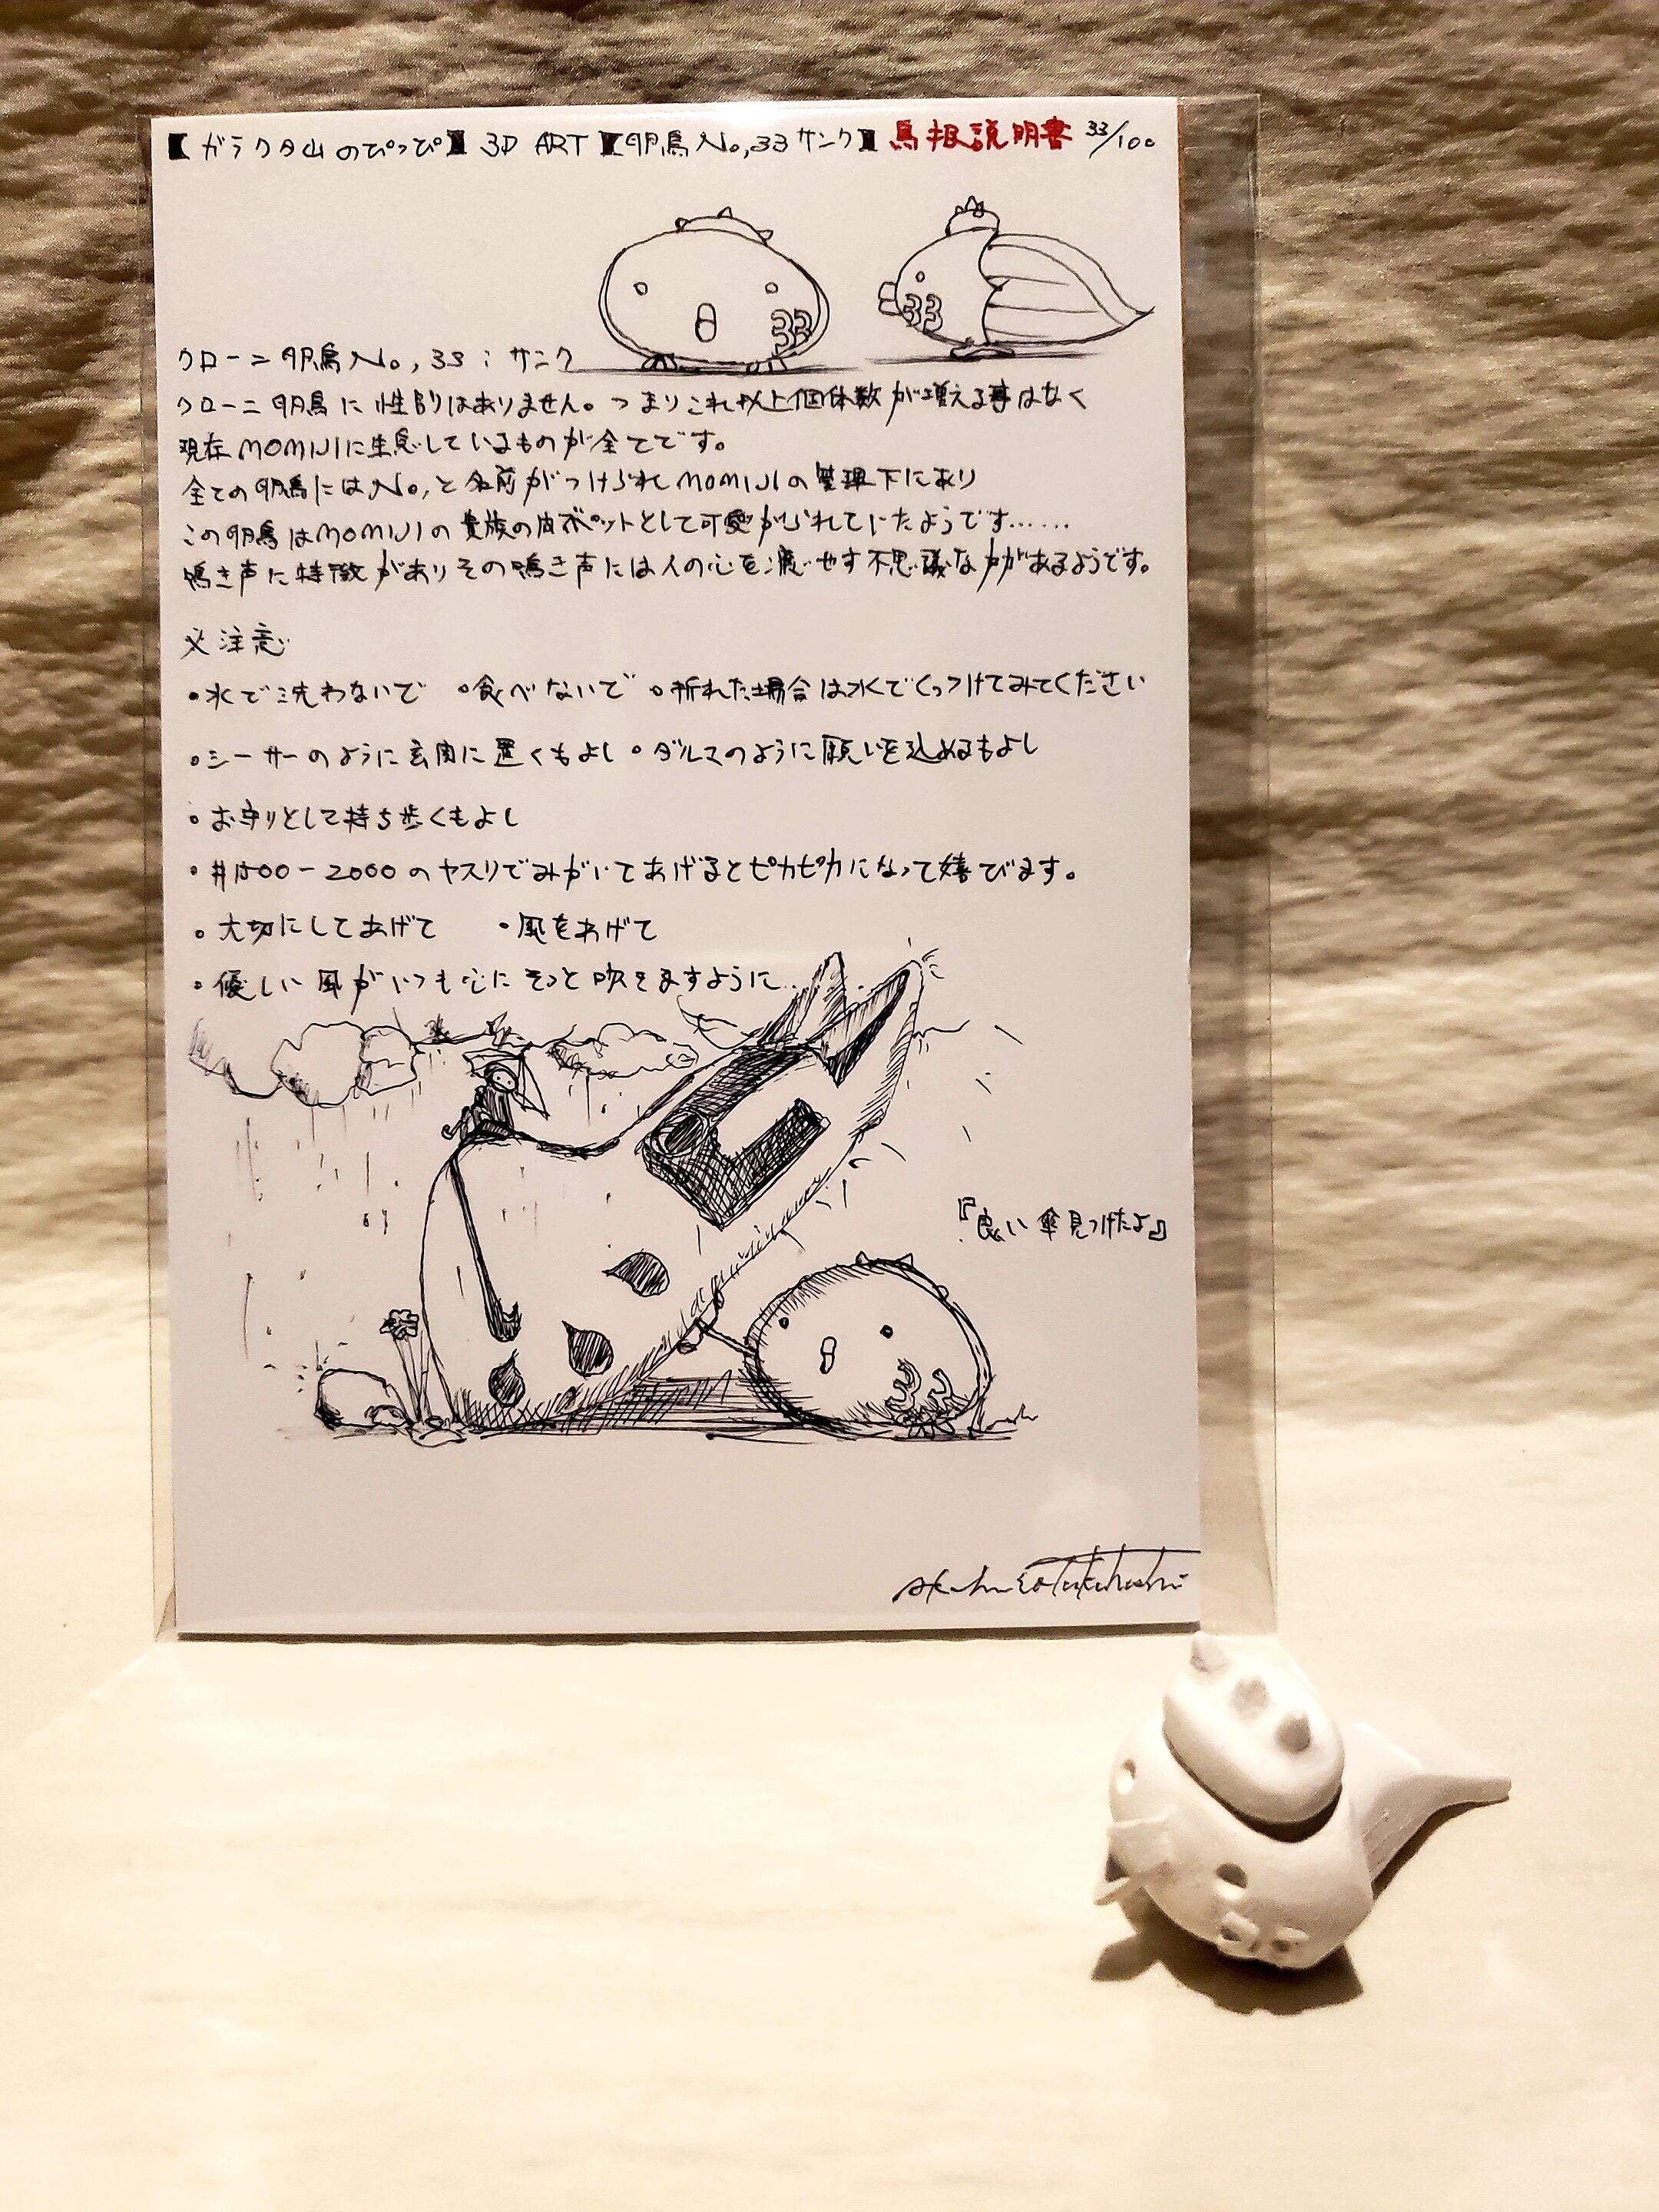 【ガラクタ山のぴっぴ】3D ART【卵鳥No,33サンク】鳥扱説明書 33/100
33
33
クローニ卵鳥No,33:サンク
クローニ卵鳥に性別はありません。つまりこれ以上個体数が増える事はなく
現在MOMIJIに生息しているものが全てです。
全ての卵鳥にはNo,と名前がつけられMOMIJIの管理下にあり
この卵鳥はMOMIJIの貴族のペットとして可愛がられていたようです……
鳴き声に特徴がありその鳴き声には人の心を癒やす不思議な力があるようです。
※注意
•水で洗わないで •食べないで •折れた場合は水でくっつけてみてください
•シーサーのように玄関に置くもよし •ダルマのように願いを込めるもよし
•お守りとして持ち歩くもよし
•#1500-2000のヤスリでみがいてあげるとピカピカになって喜びます。
•大切にしてあげて •風をあげて
•優しい風がいつも心にそっと吹きますように…
『良い傘見つけたよ』
33
Akihiro Takahashi